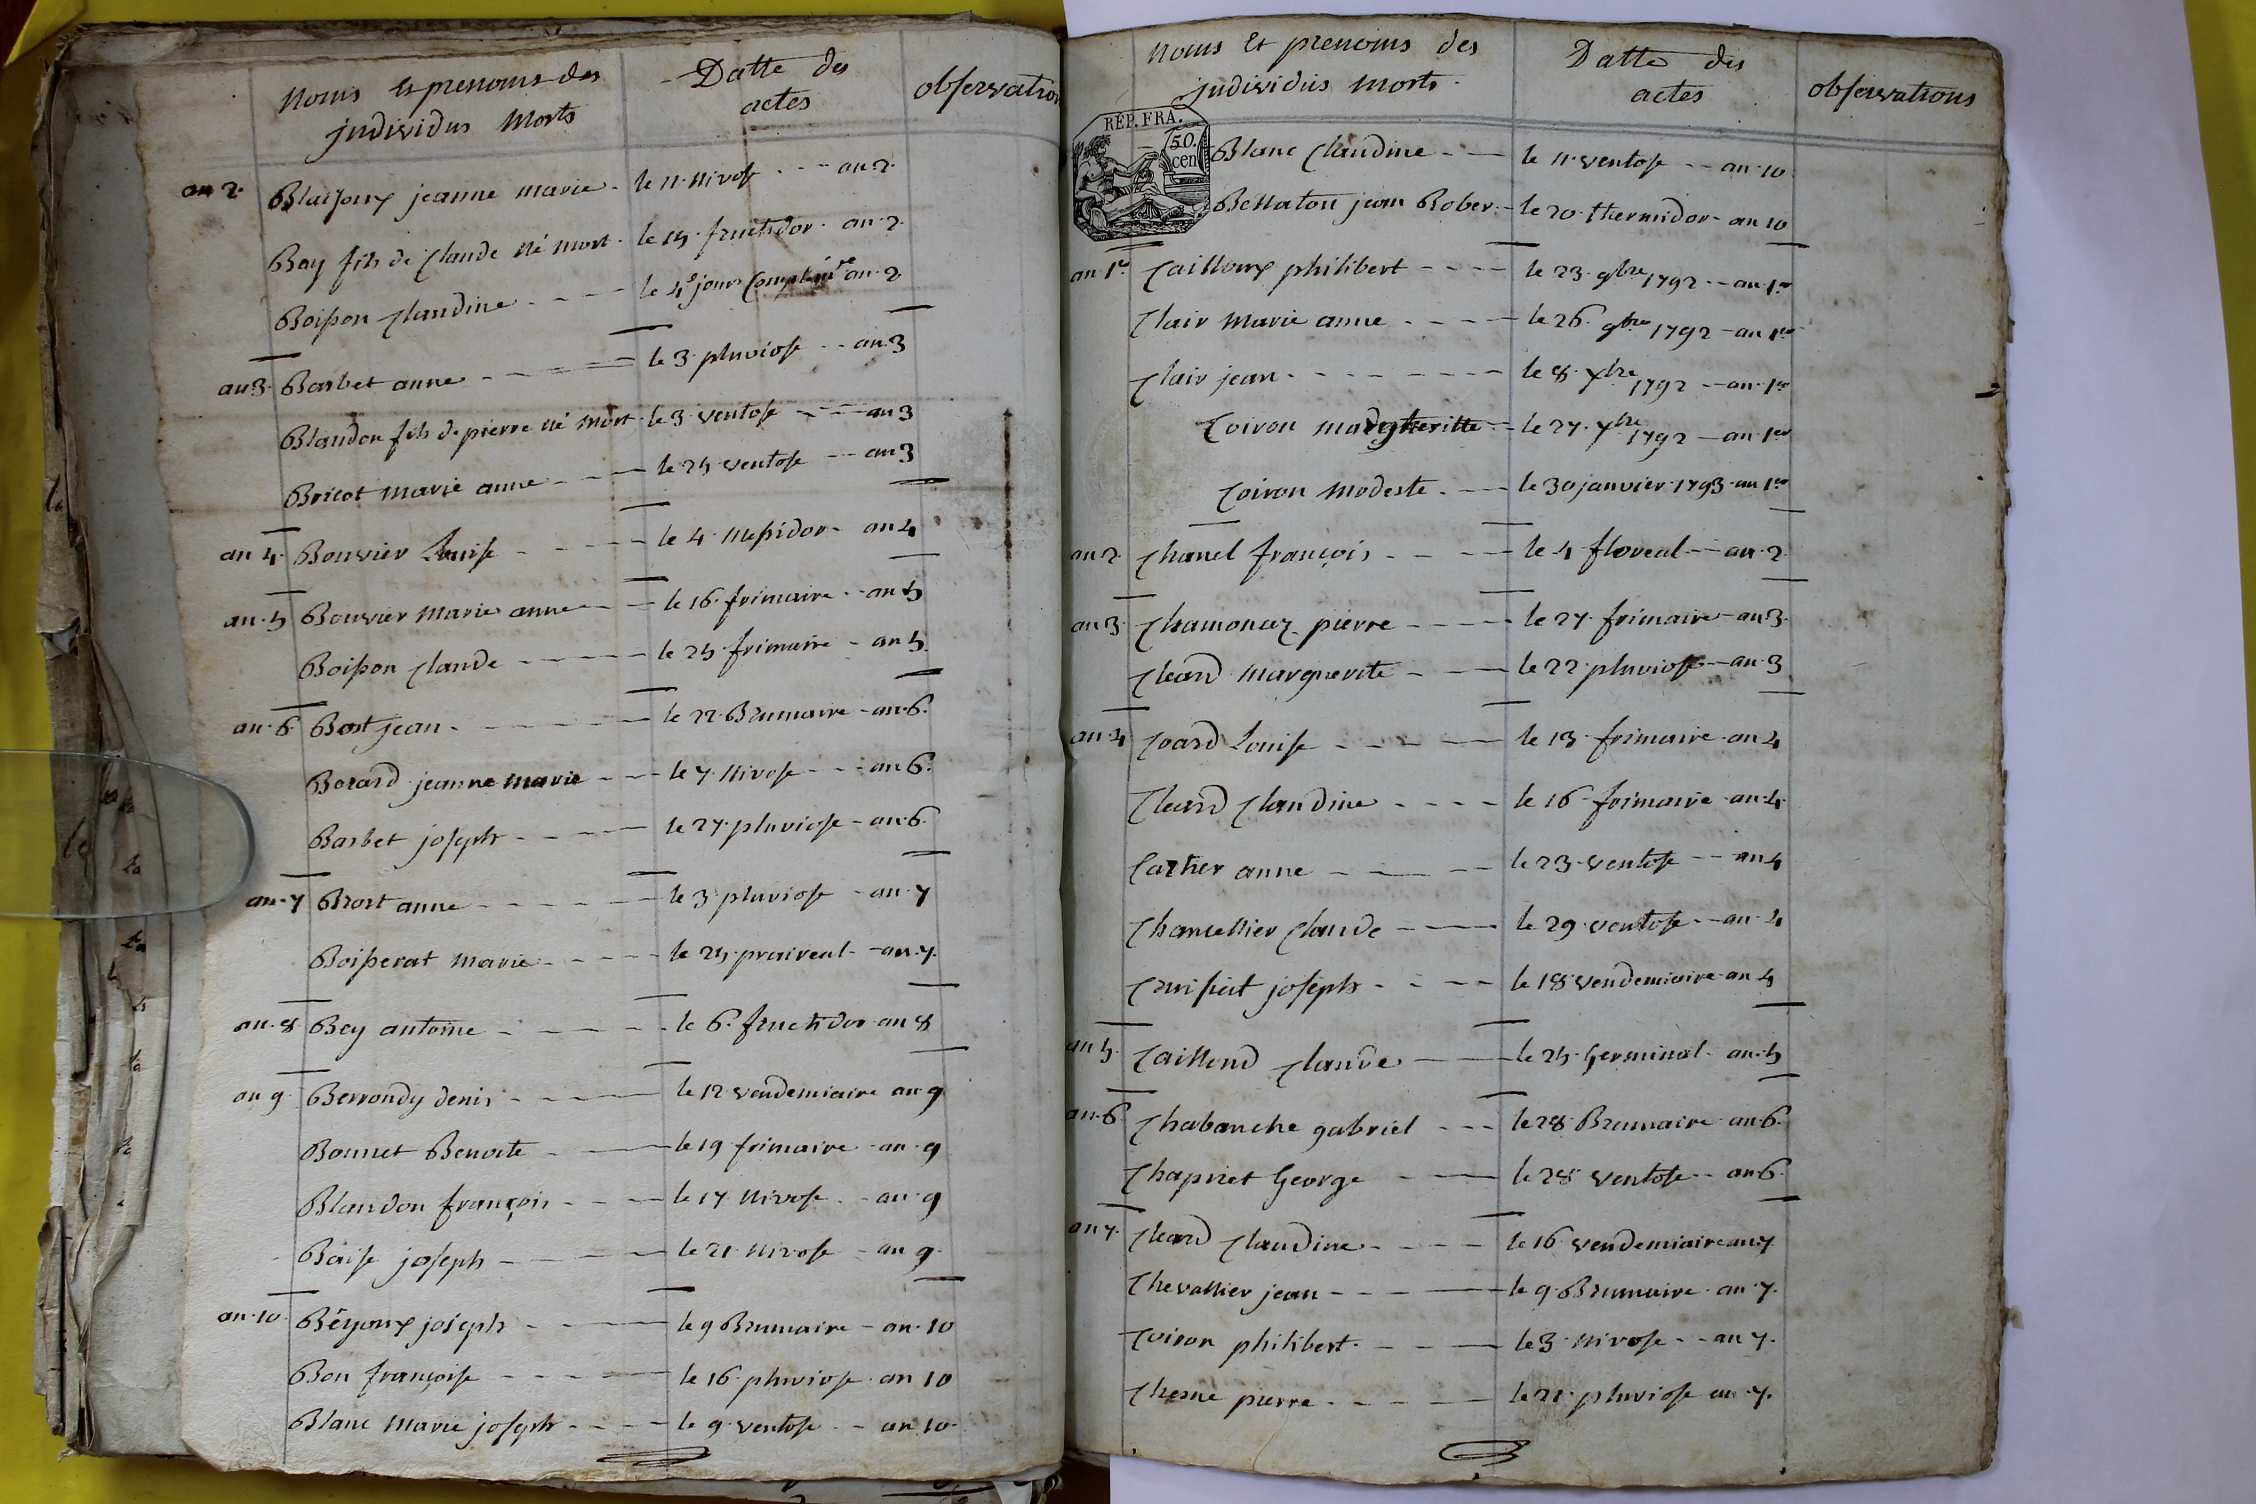 Noms et prenoms des
individus morts
Datte des
actes
observation
an 2. Blaijoux jeanne marie - le 11 nivose - - - an 2.
Bay fils de Claude né mort - le 15 fructidor - an 2.
Boisson Claudine - - - - le 4e jour Complre an 2.
an 3. Barbet anne - - - - le 3 pluviose - - an 3
Blandon fils de pierre né mort - le 3 ventose - - - an 3
Bricot marie anne - - - le 25 ventose - - an 3
an 4. Bouvier Louise - - - - le 4 messidor - an 4
an 5 Bouvier marie anne - - le 16 frimaire - an 5
Boisson Claude - - - - le 25 frimaire - an 5.
an 6. Bost jean - - - - le 22 Brumaire - an 6.
Berard jeanne marie - - le 7 nivose - - an 6.
Barbet joseph - - - - le 27 pluviose - an 6.
an 7 Brort anne - - - - le 3 pluviose - an 7
Boisserat marie - - - - le 25 praireal - an 7.
an 8 Bey antoine - - - - le 6 fructidor an 8
an 9. Berrondy denis - - - - le 12 vendemiaire an 9
Bonnet Benoite - - - le 19 frimaire - an 9
Blandon françois - - - le 17 nivose - - an 9
Baise joseph - - - le 21 nivose - an 9.
an 10. Béyoux joseph - - - - le 9 Brumaire - an 10
Bon françoise - - - - le 16 pluviose an 10
Blanc marie joseph - - - - le 9 ventose - - an 10.
Noms et prenoms des
individus morts.
Datte des
actes
observations
REP. FRA.
50.
cen
Blanc Claudine - - le 11 ventose - - an 10
Bellaton jean Rober - le 20 thermidor - an 10
an 1er Cailloux philibert - - - - le 23 9bre 1792 - - an 1er
Clair marie anne - - - - le 26 9bre 1792 - an 1er
Clair jean - - - - - - le 8 Xbre 1792 - - an 1er
Coiron margheritte - le 27 Xbre 1792 - an 1er
Coiron modeste - - - le 30 janvier 1793 an 1er
an 2. Chanel françois - - - - le 4 floreal - - an 2.
an 3. Chamonez pierre - - - - le 27 frimaire - an 3.
Cleard marguerite - - - le 22 pluviose - an 3
an 4 Coard Louise - - - - le 13 frimaire an 4
Cleard Claudine - - - - le 16 frimaire an 4.
Cartier anne - - - - le 23 ventose - - an 4
Chancellier Claude - - - le 29 ventose - - an 4
Joseph - - - - le 18 vendemiaire an 4
an 5. Caillend Claude - - - le 25 Germinal - an 5
an 6. Chabanche gabriel - - - le 28 Brumaire an 6.
Chapriet George - - - le 28 ventose - - an 6.
an 7. Cleard Claudine - - - - le 16 vendemiaire an 7.
Chevallier jean - - - - le 9 Brumaire an 7.
Coiron philibert - - - - le 3 nivose - - an 7.
Chesne pierre - - - - le 21 pluviose an 7.